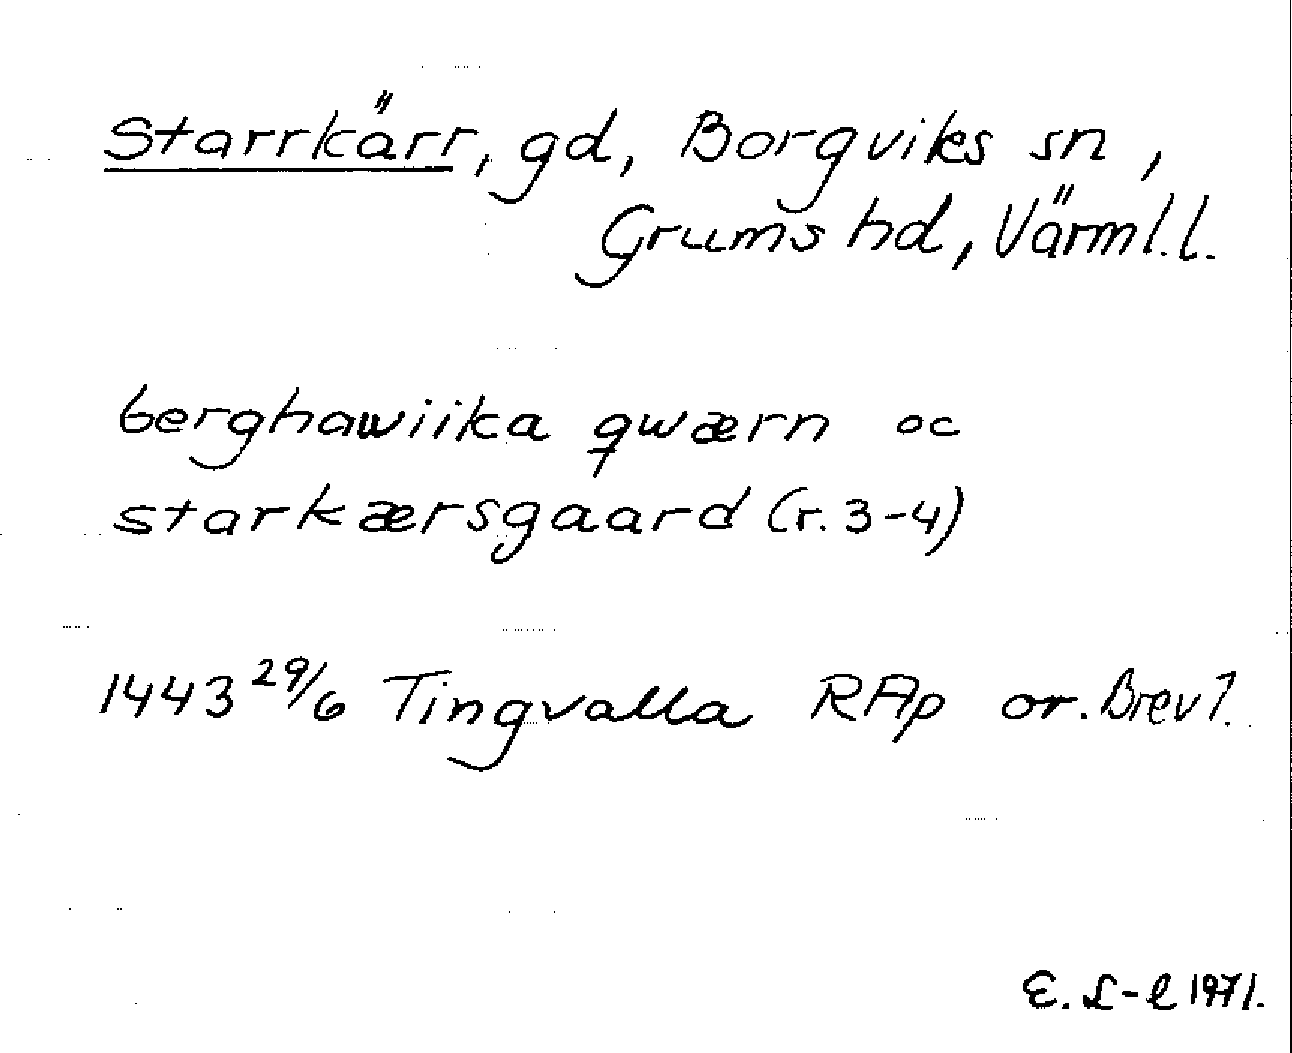 Starrkärr, gd, Borgviks sn,
Grums hd, Värml.l.
berghawiika qwærn oc
starkærsgaard (r. 3-4)
1443 29/6 Tingvalla RAp or. Brev 1.
E. L-l 1971.